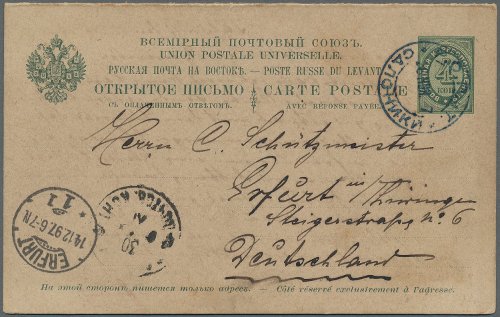 ВСЕМІРНЫЙ ПОЧТОВЫЙ СОЮЗЪ.
UNION POSTALE UNIVERSELLE.
РУССКАЯ ПОЧТА НА ВОСТОКѢ. — POSTE RUSSE DU LEVANT
ОТКРЫТОЕ ПИСЬМО — CARTE POSTALE
СЪ ОПЛАЧЕННЫМЪ ОТВѢТОМЪ. AVEC RÉPONSE PAYÉE
Herrn C. Schützmeister
Erfurt in Thüringen
Steigerstraße No 6
Deutschland
ERFURT
14.12.97. 6-7 N
* 1 *
30
На этой сторонѣ пишется только адресъ. — Côté réservé exclusivement à l'adresse.